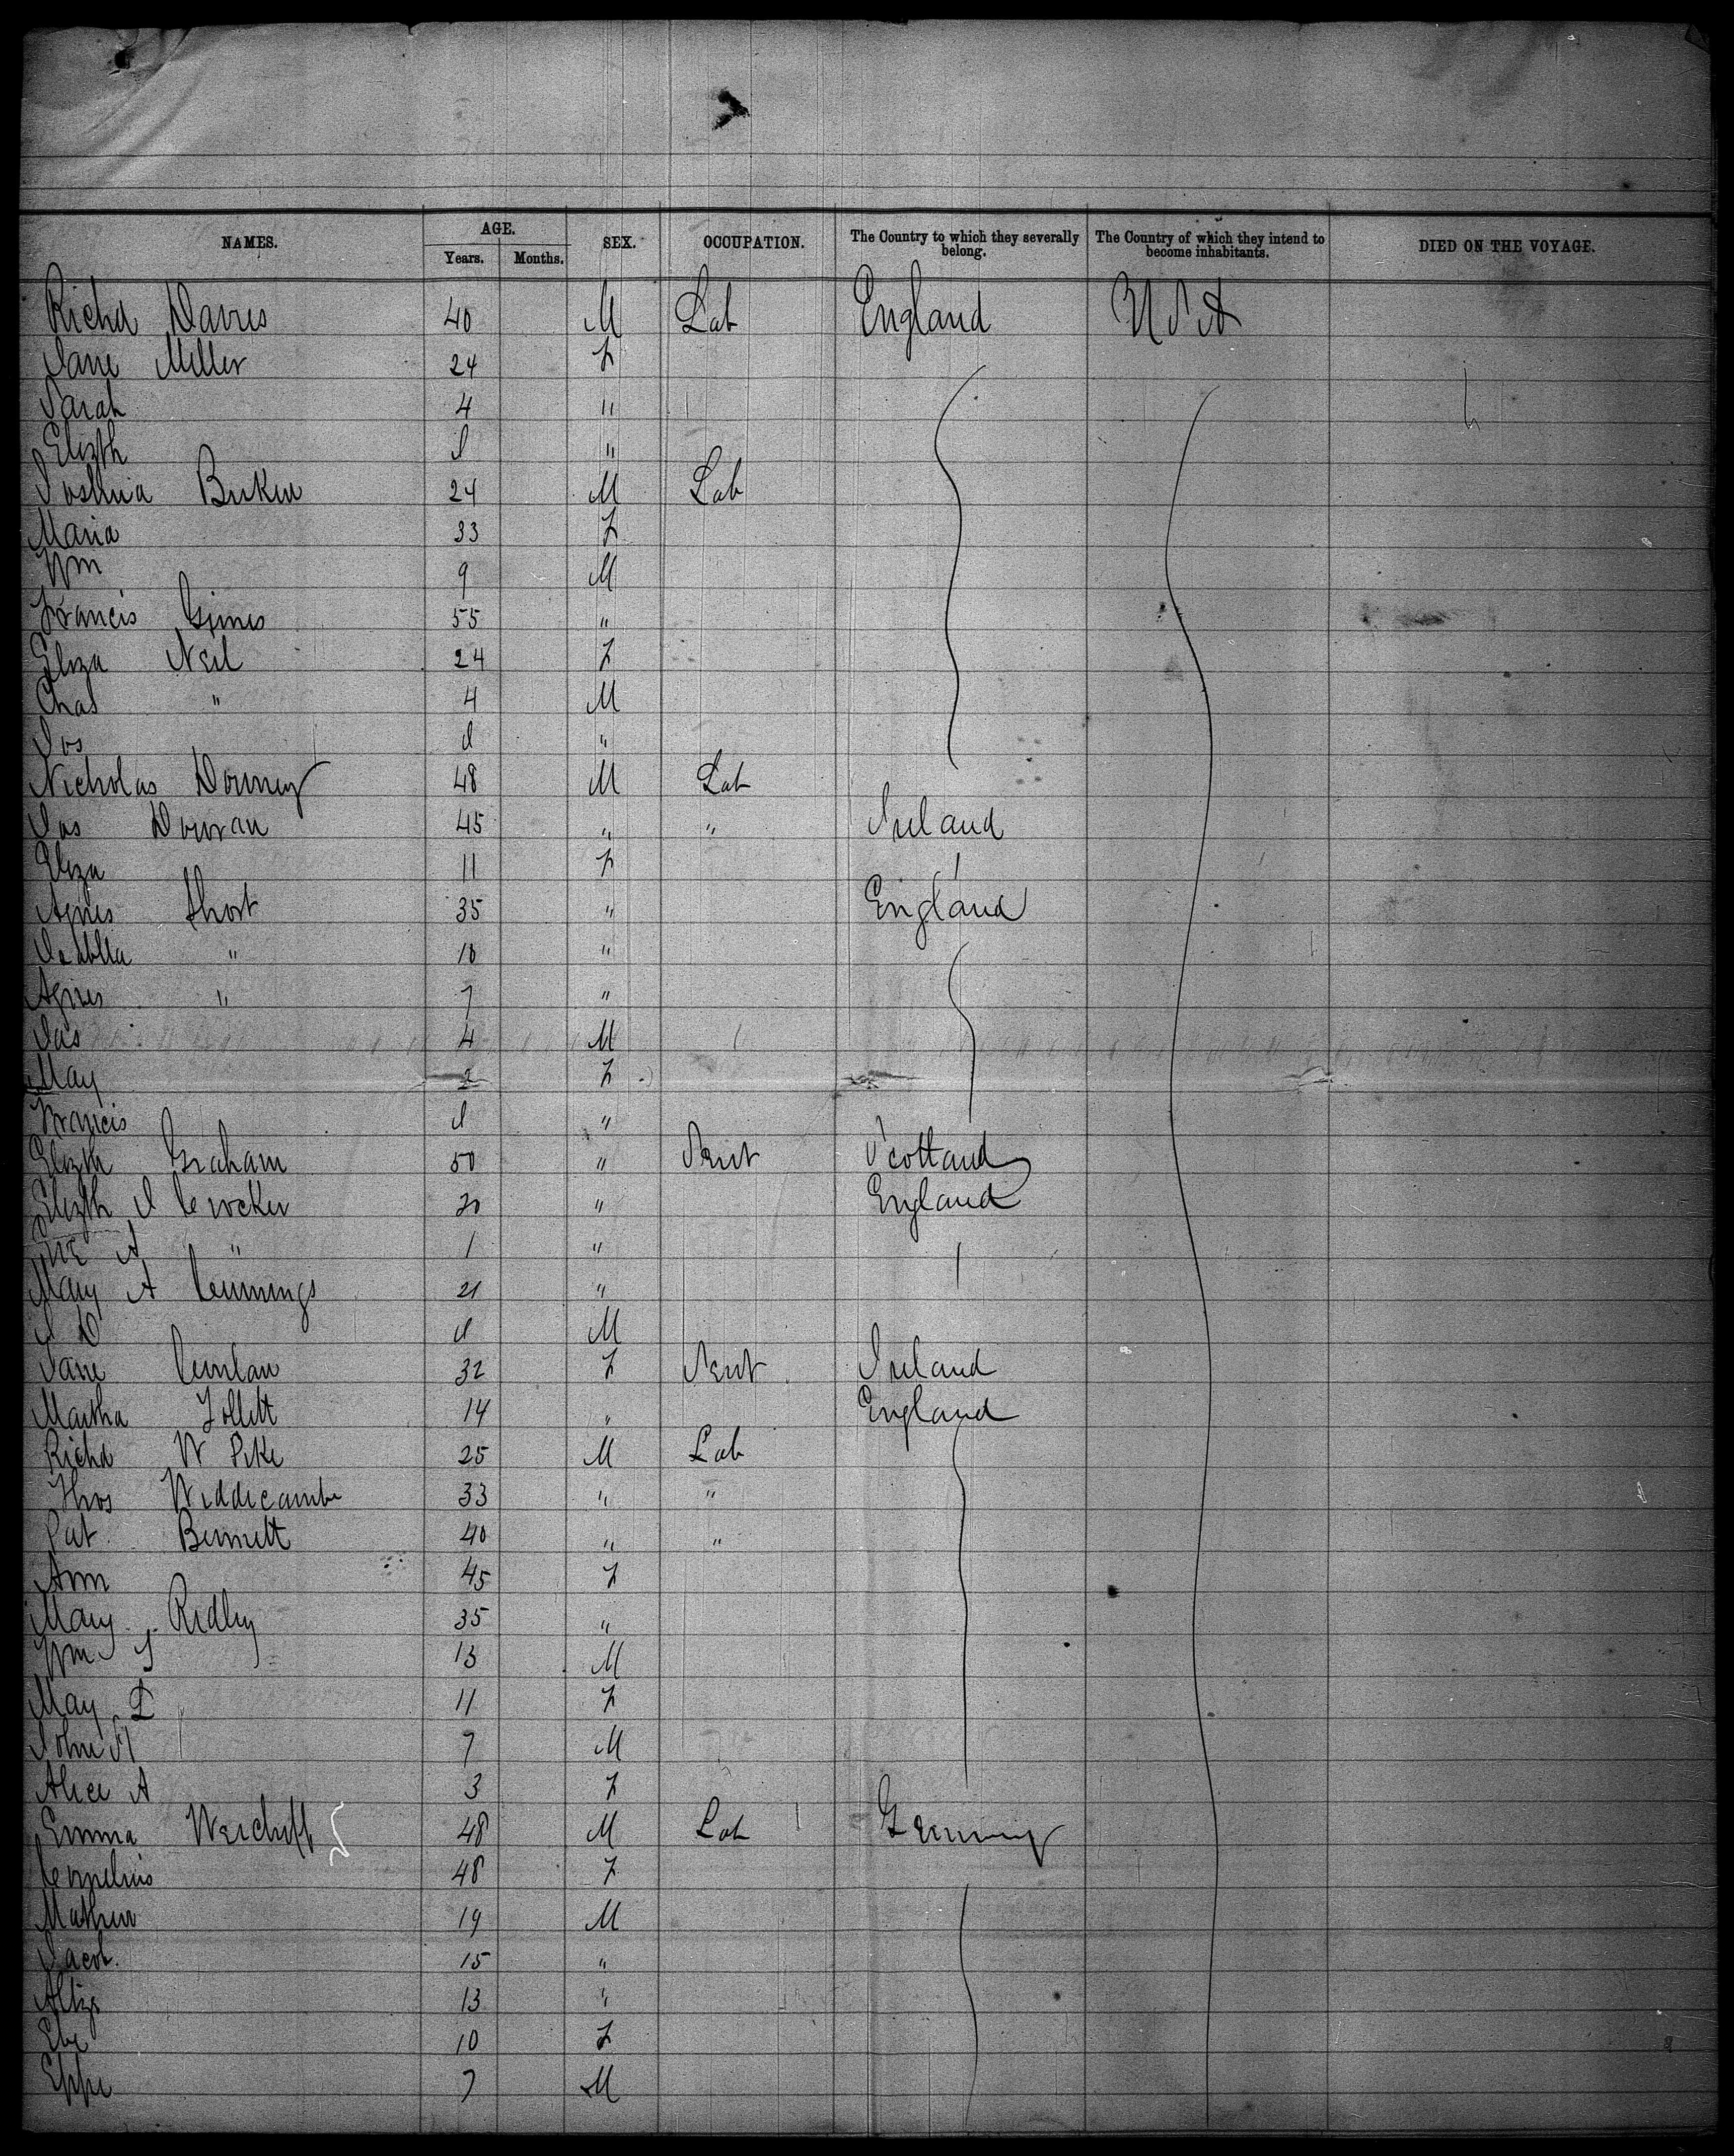 NAMES. AGE. SEX. OCCUPATION. The Country to which they severally belong. The Country of which they intend to become inhabitants. DIED ON THE VOYAGE.
Years. Months.
Richd Davies 40 M Lab England U S A
Jane Miller 24 F
Sarah 4 "
Elizth I "
Joshua 24 M Lab
Maria 33 F
Wm 9 M
Francis 55 "
Eliza Neil 24 F
Chas " 4 M
Jos I "
Nicholas Downey 48 M Lab
Jas 45 " " Ireland
Eliza 11 F
Agnes Short 35 " England
Isabella " 10 "
Agnes " 7 "
Jas 4 M
May 2 F
Francis I "
Elizth Graham 50 " Servt Scotland
Elizth J Crocker 30 " England
A " 1 "
Mary A Cummings 21 "
J D I M
Jane 32 F Servt Ireland
Martha Follett 14 " England
Richd W Pike 25 M Lab
Thos Widdicombe 33 " "
Pat Bennett 40 " "
Ann 45 F
Mary Ridley 35 "
Wm J 13 M
May E 11 F
John H 7 M
Alice A 3 F
Emma 48 M Lab Germany
Cornelius 48 F
Mathew 19 M
Jacob 15 "
13 "
10 F
7 M